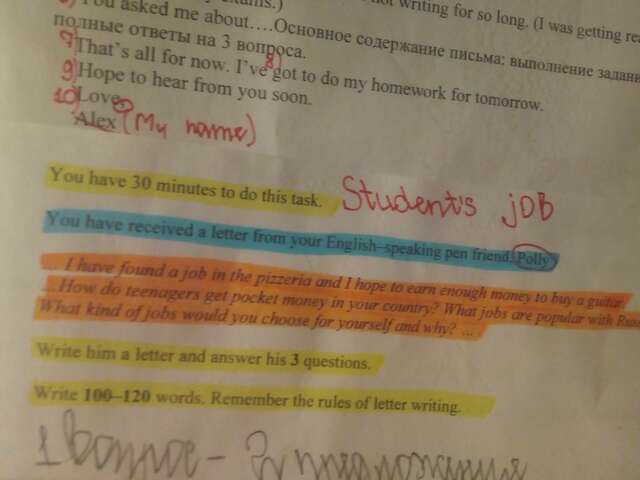 You asked me about….Основное содержание письма: выполнение
not writing for so long. (I was getting
полные ответы на 3 вопроса.
7) That's all for now. I've 8) got to do my homework for tomorrow.
9) Hope to hear from you soon.
10) Love,
Alex (My name)
You have 30 minutes to do this task. Student's jOB
You have received a letter from your English–speaking pen friend Polly
... I have found a job in the pizzeria and I hope to earn enough money to buy a guitar
...How do teenagers get pocket money in your country? What jobs are popular with
What kind of jobs would you choose for yourself and why? ...
Write him a letter and answer his 3 questions.
Write 100–120 words. Remember the rules of letter writing.
1 вопрос - 3 предложения